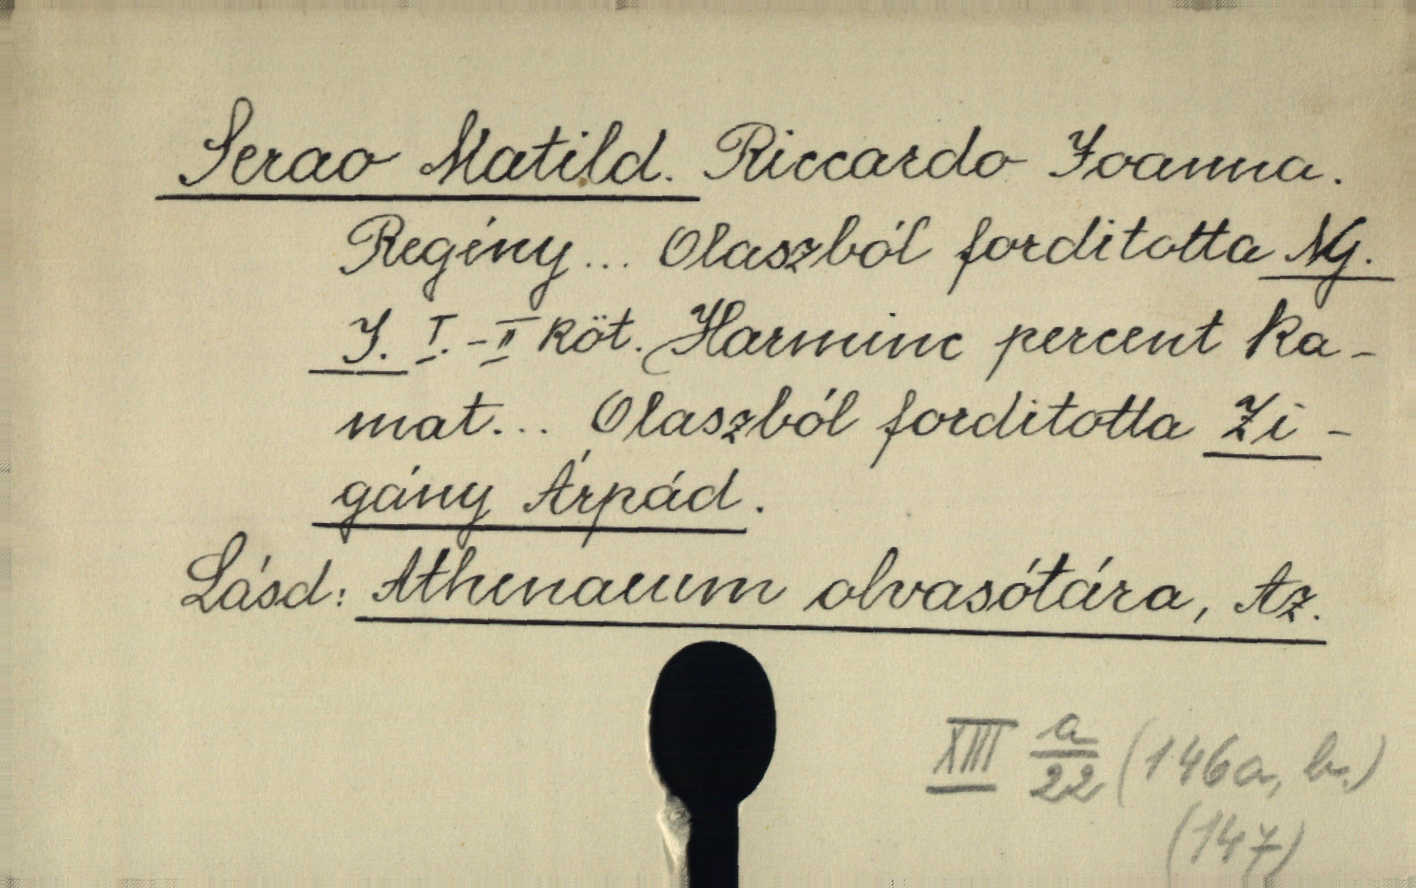 Serao Matild. Riccardo Joanna.
Regény... Olaszból forditotta Ng.
J. I.-II köt. Harminc percent ka-
mat... Olaszból forditotta Zi-
gány Árpád.
Lásd: Athenaeum olvasótára, Az.
XIII a/22 (146a, b.)
(147)